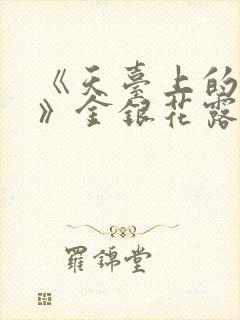 《天臺上的
》金銀花露
羅錦堂